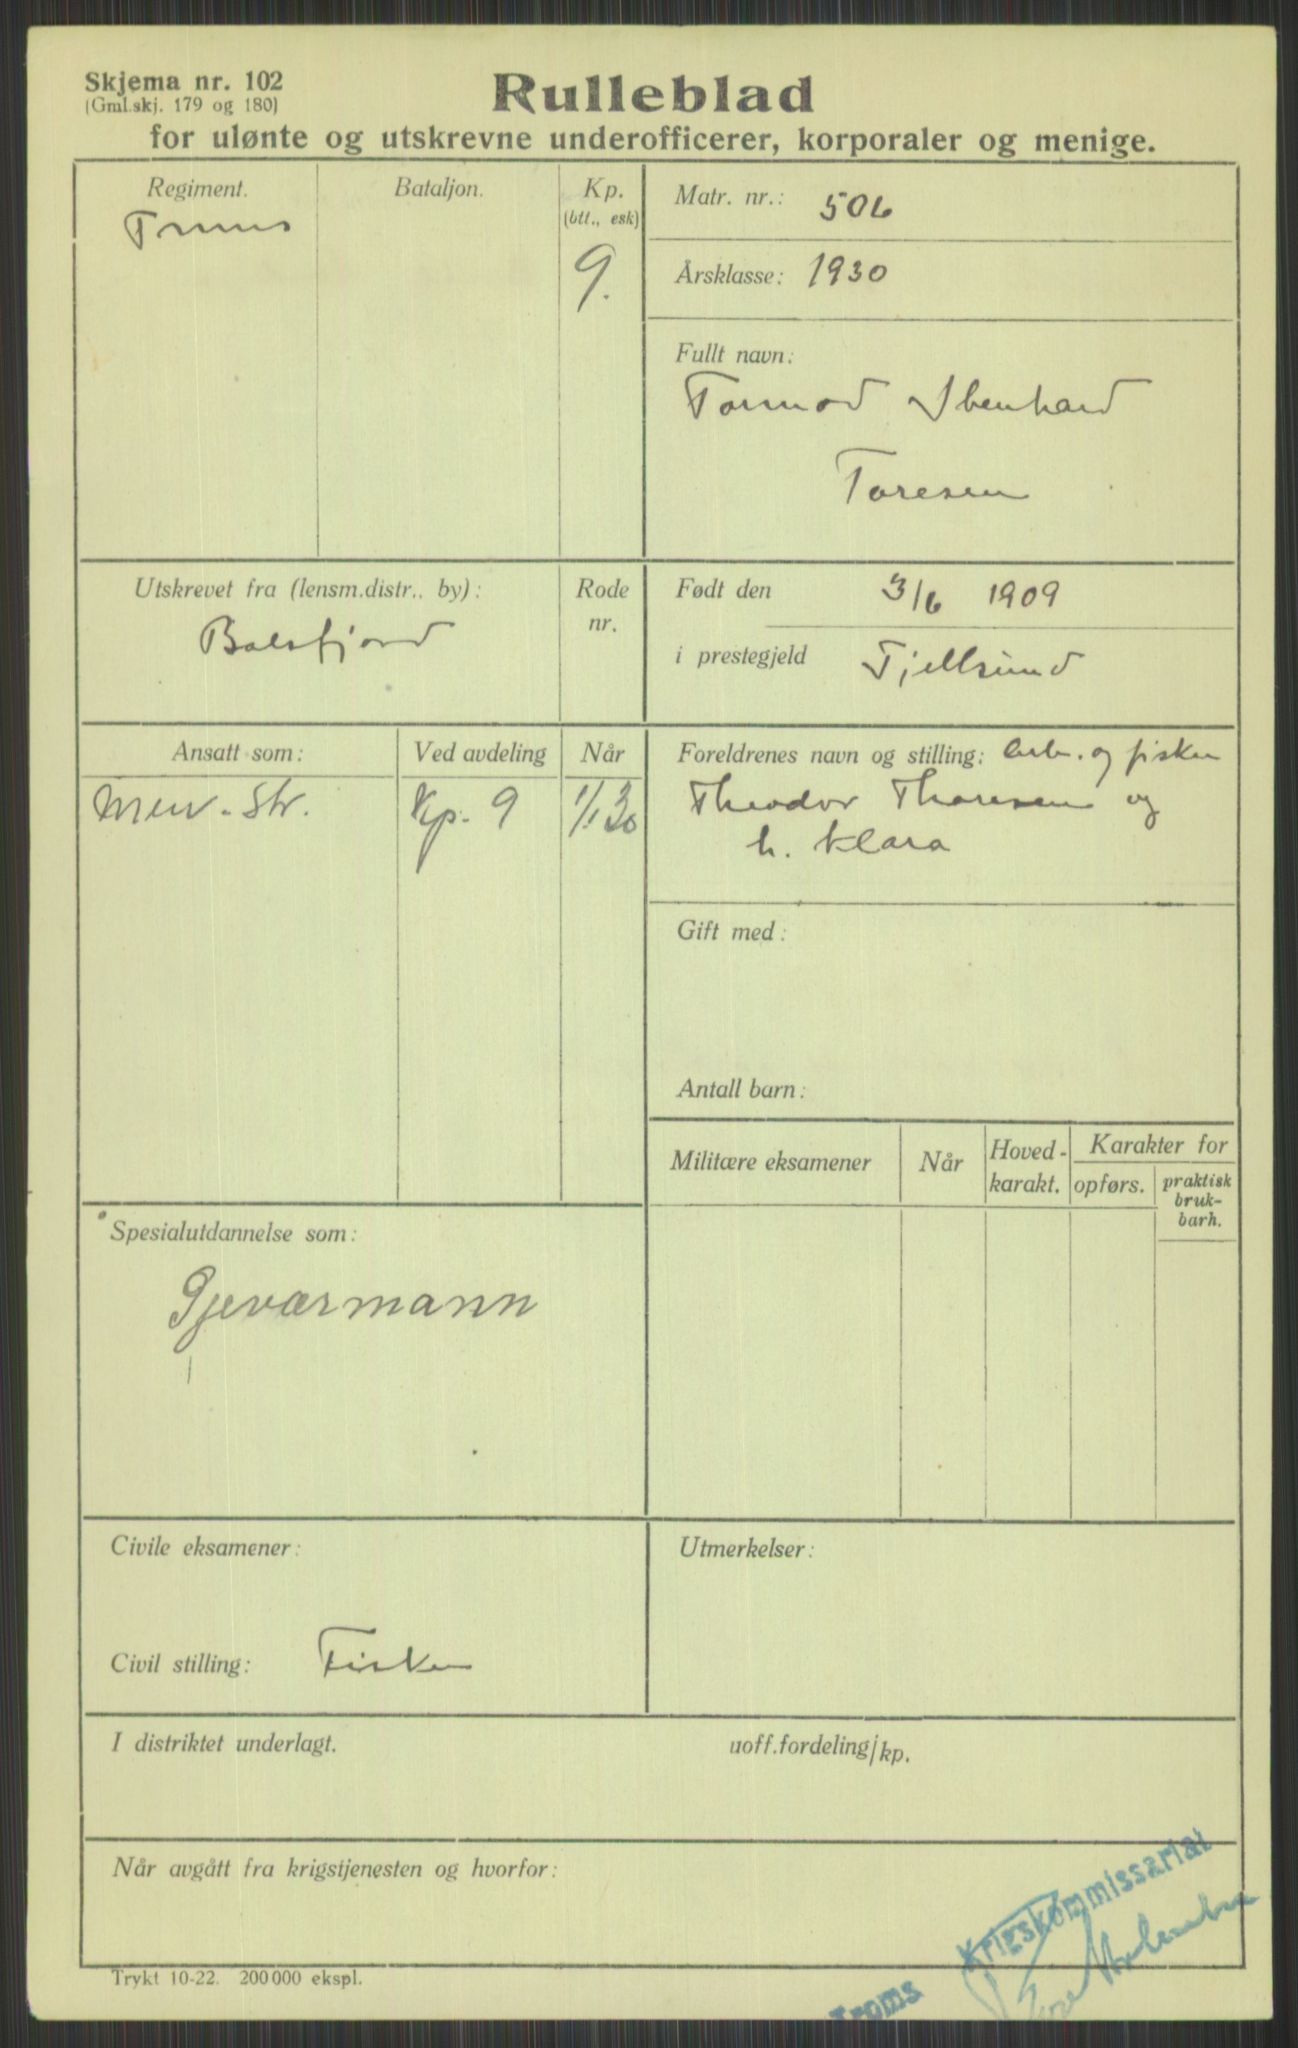 Skjema nr. 102
(Gml.skj. 179 og 180)
Rulleblad
for ulønte og utskrevne underofficerer, korporaler og menige.
Regiment.
Troms
Bataljon.
Kp.
(btt., esk)
9.
Matr. nr.: 506
Årsklasse: 1930
Fullt navn:
Tormod Ibenhard
Toresen
Utskrevet fra (lensm.distr.. by):
Balsfjord
Rode
nr.
Født den 3/6 1909
i prestegjeld Tjellsund
Ansatt som:
Men. Str.
Ved avdeling
Kp. 9
Når
1/1 30
Foreldrenes navn og stilling: Arb. og fisker
Theodor Thoresen og
h. Klara
Gift med:
Antall barn:
Militære eksamener
Når
Hoved-
karakt.
Karakter for
opførs.
praktisk
bruk-
barh.
Spesialutdannelse som:
Gjeværmann
Civile eksamener:
Civil stilling: Fisker
Utmerkelser:
I distriktet underlagt.
uoff.fordeling/kp.
Når avgått fra krigstjenesten og hvorfor:
Troms Krigskommissariat
Trykt 10-22. 200 000 ekspl.